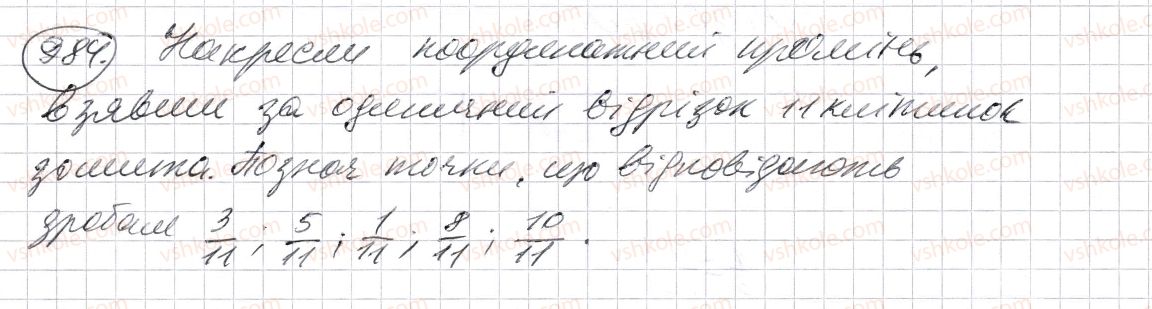 984. Накресли координатний промінь,
взявши за одиничний відрізок 11 клітинок
зошита. Познач точки, що відповідають
дробам 3/11; 5/11; 1/11; 8/11; 10/11.